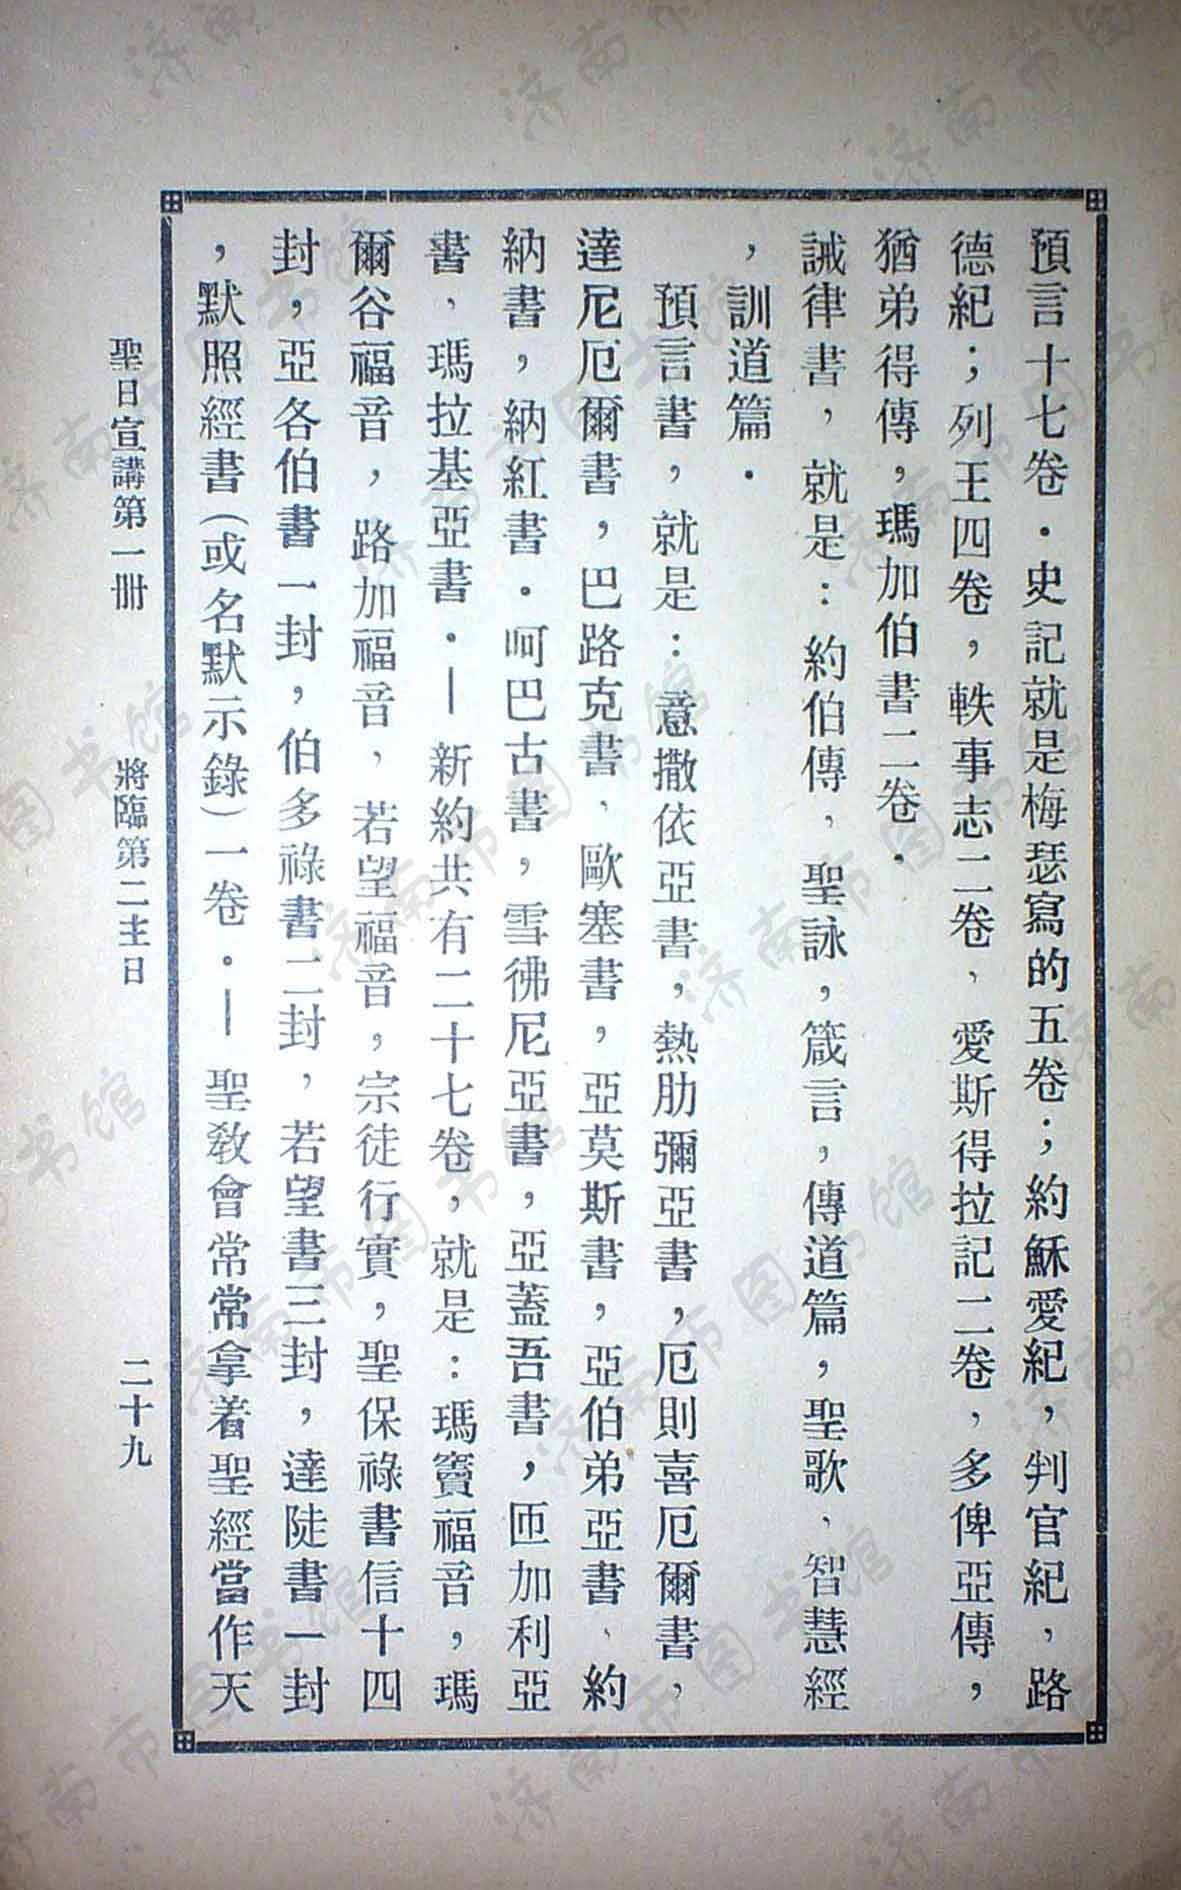 預言十七卷．史記就是梅瑟寫的五卷；約穌愛紀，判官紀，路
德紀；列王四卷，軼事志二卷，愛斯得拉記二卷，多俾亞傳，
猶弟得傳，瑪加伯書二卷．
誡律書，就是：約伯傳，聖詠，箴言，傳道篇，聖歌，智慧經
，訓道篇．
預言書，就是：意撒依亞書，熱肋彌亞書，厄則喜厄爾書，
達尼厄爾書，巴路克書，歐塞書，亞莫斯書，亞伯弟亞書，約
納書，納紅書．呵巴古書，雪彿尼亞書，亞蓋吾書，匝加利亞
書，瑪拉基亞書．—新約共有二十七卷，就是：瑪竇福音，瑪
爾谷福音，路加福音，若望福音，宗徒行實，聖保祿書信十四
封，亞各伯書一封，伯多祿書二封，若望書三封，達陡書一封
，默照經書（或名默示錄）一卷．—聖教會常常拿着聖經當作天
聖日宣講第一冊　將臨第二主日　二十九
济南市图书馆